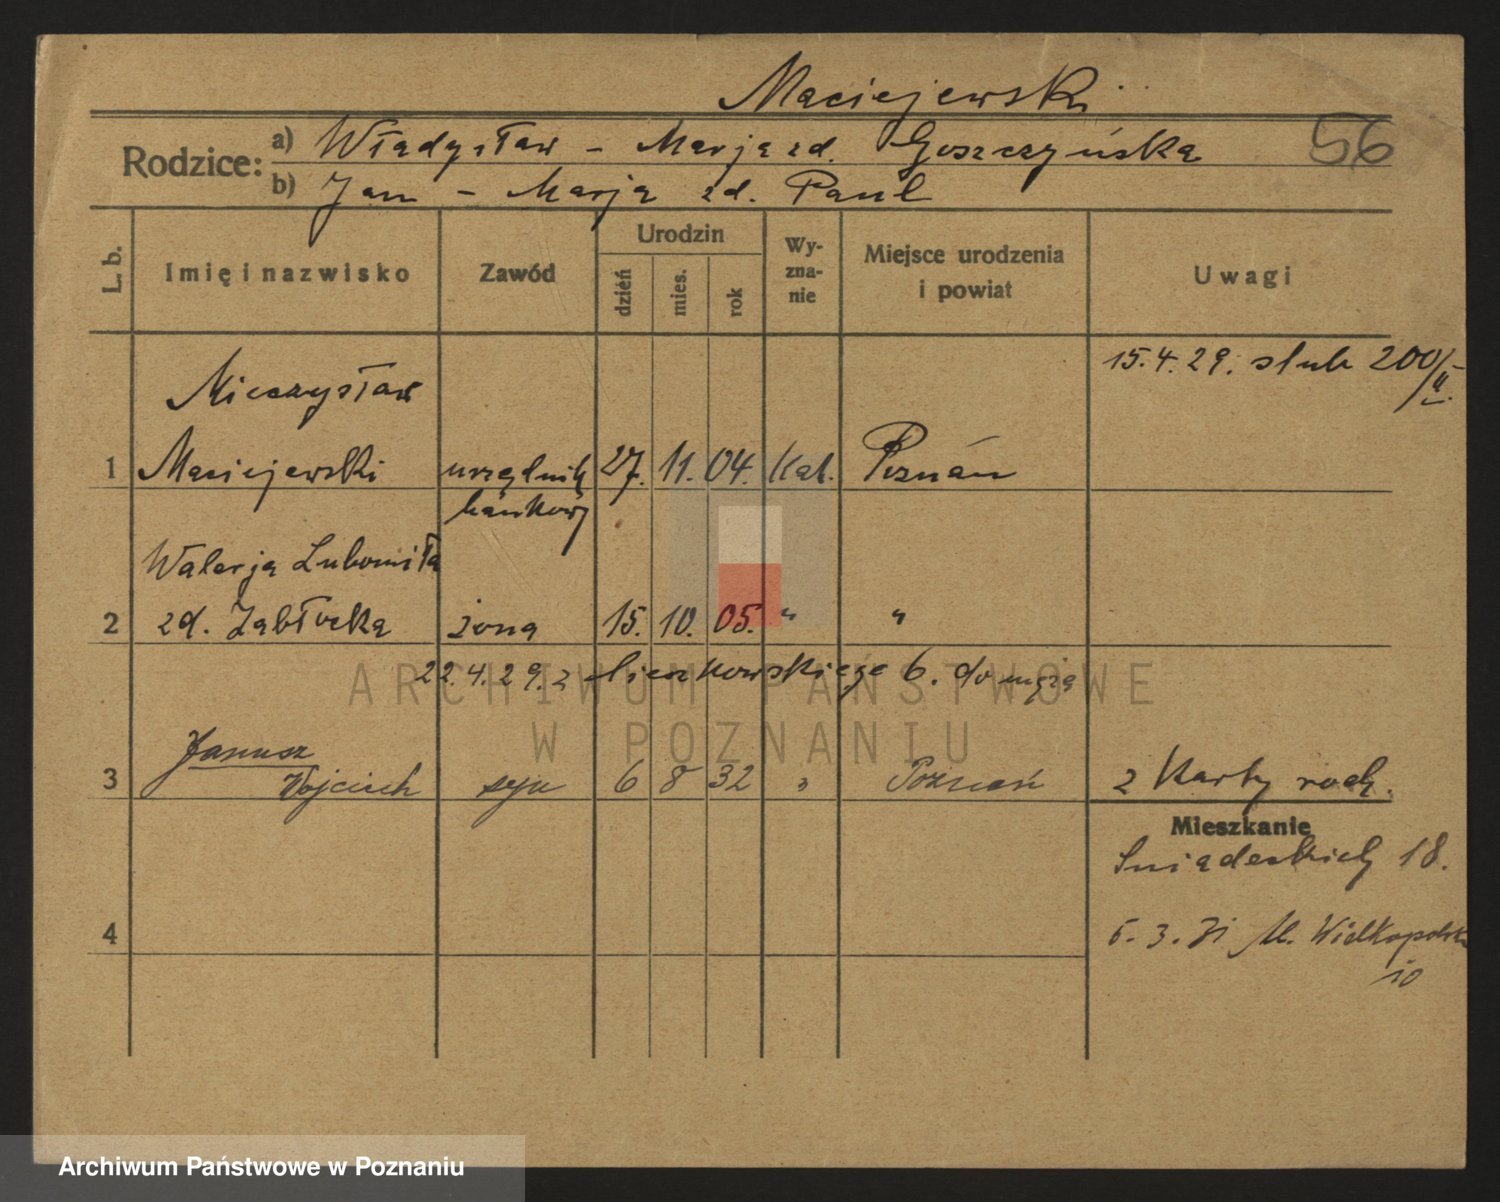 Maciejewski
Rodzice:
a) Władysław - Marja zd. Goszczyńska
56
b) Jan - Marja zd. Paul
L. b.
Imię i nazwisko
Zawód
Urodzin
dzień
mies.
rok
Wy-
zna-
nie
Miejsce urodzenia
i powiat
Uwagi
15.4.29. slub 200/II.
Mieczysław
1 Maciejewski urzędnik 27. 11. 04. Kat. Poznań
bankowy
Walerja Lubomiła
2 zd. Zabłocka żona 15. 10. 05. " "
22.4.29. z Cieszkowskiego 6. do męża
Janusz
3 Wojciech syn 6 8 32 " Poznań
z Karty rodz.
Mieszkanie
Sniadeckich 18.
4
5.3.31 Al. Wielkopolska
10
ARCHIWUM PAŃSTWOWE
W POZNANIU
Archiwum Państwowe w Poznaniu